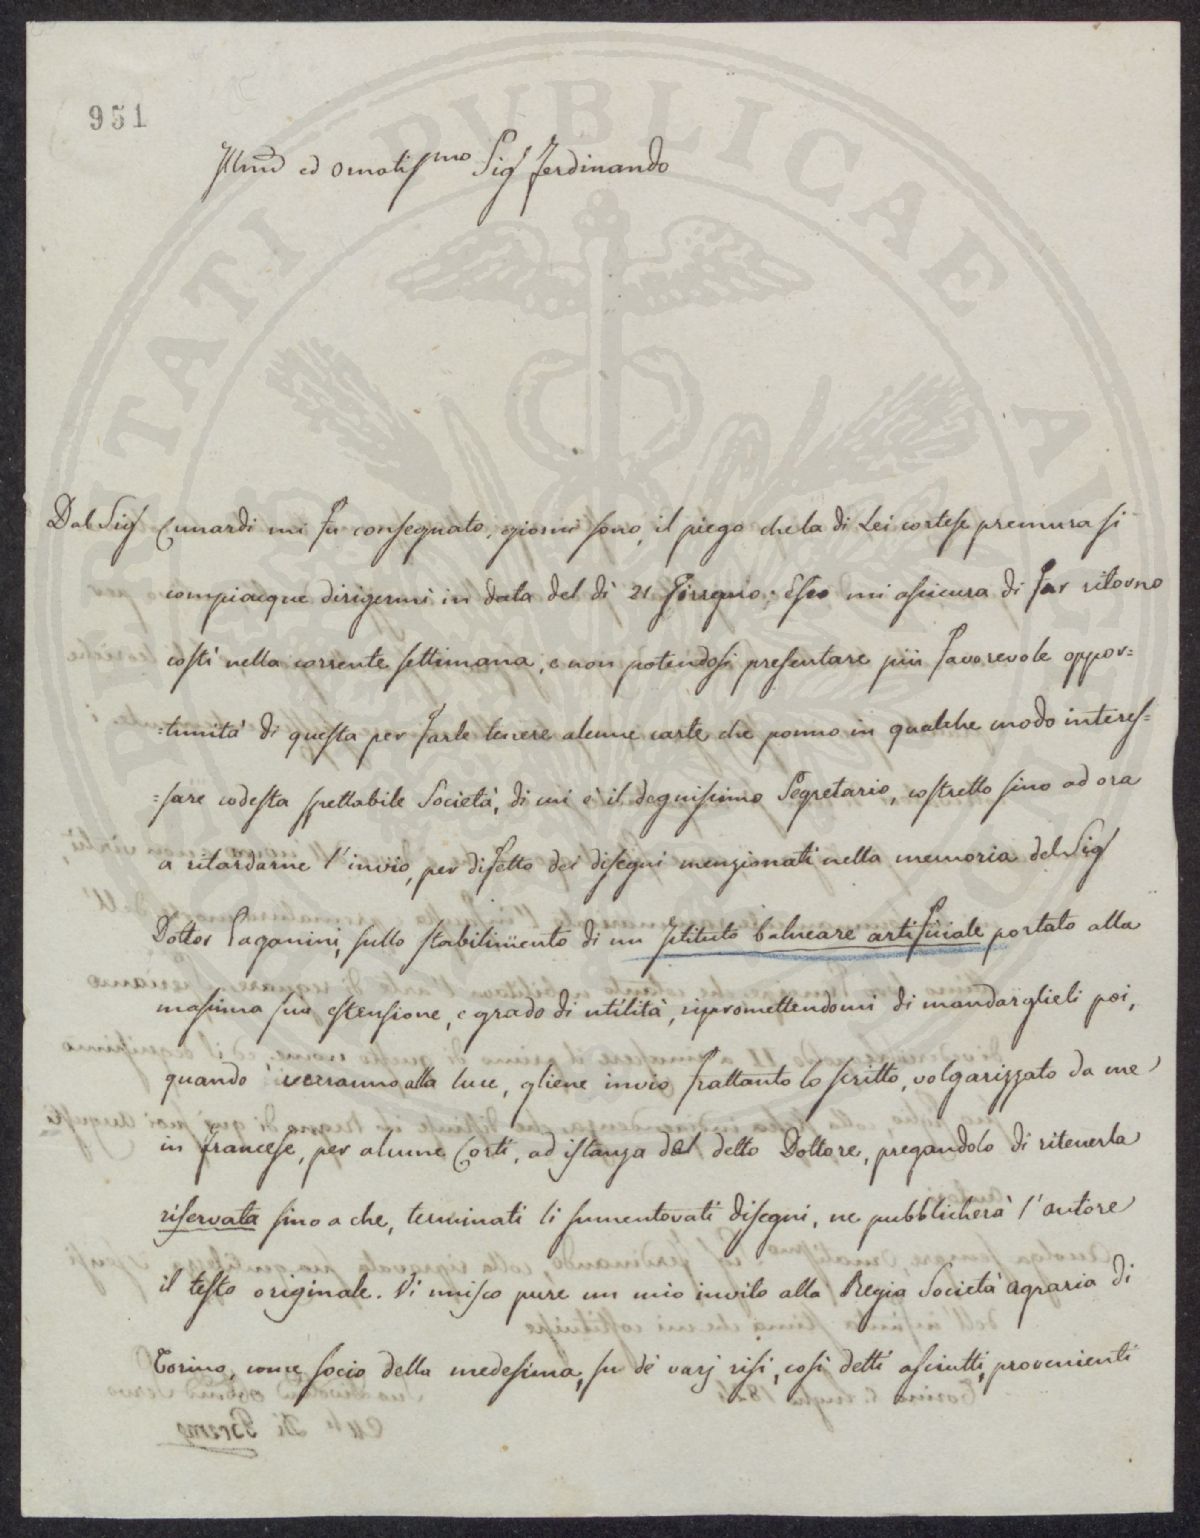 951
Illmo ed Ornatissmo Sigr Ferdinando
Dal Sigr Cunardi mi fu consegnato, giorni sono, il piego che la di Lei cortese premura si
compiacque dirigermi in data del dì 21 Giugno; Esso mi assicura di far ritorno
costì nella corrente settimana, e non potendosi presentare più favorevole oppor=
=tunità di questa per farle tenere alcune carte che ponno in qualche modo interes=
=sare codesta spettabile Società, di cui è il degnissimo Segretario, costretto sino ad ora
a ritardarne l'invio, per difetto dei disegni menzionati nella memoria del Sigr
Dottor Paganini, sullo stabilimento di un Istituto balneare artificiale portato alla
massima sua estensione, e grado di utilità, ripromettendomi di mandarglieli poi,
quando verranno alla luce, gliene invio frattanto lo scritto, volgarizzato da me
in francese, per alcune Corti, ad istanza del detto Dottore, pregandolo di ritenerla
riservata sino a che, terminati li summentovati disegni, ne pubblicherà l'autore
il testo originale. Vi unisco pure un mio invito alla Regia Società agraria di
Torino, come socio della medesima, su de' varj risi, così detti asciutti, provenienti